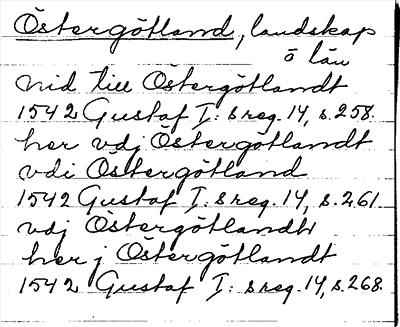 Östergötland, landskap
o län
nid till Östergötlandt
1542 Gustaf I: s reg. 14, s. 258.
her vdj Östergötlandt
vdi Östergötland
1542 Gustaf I: s reg. 14, s. 261.
vdj Östergötlandh
her j Östergötlandt
1542 Gustaf I: s reg. 14, s. 268.